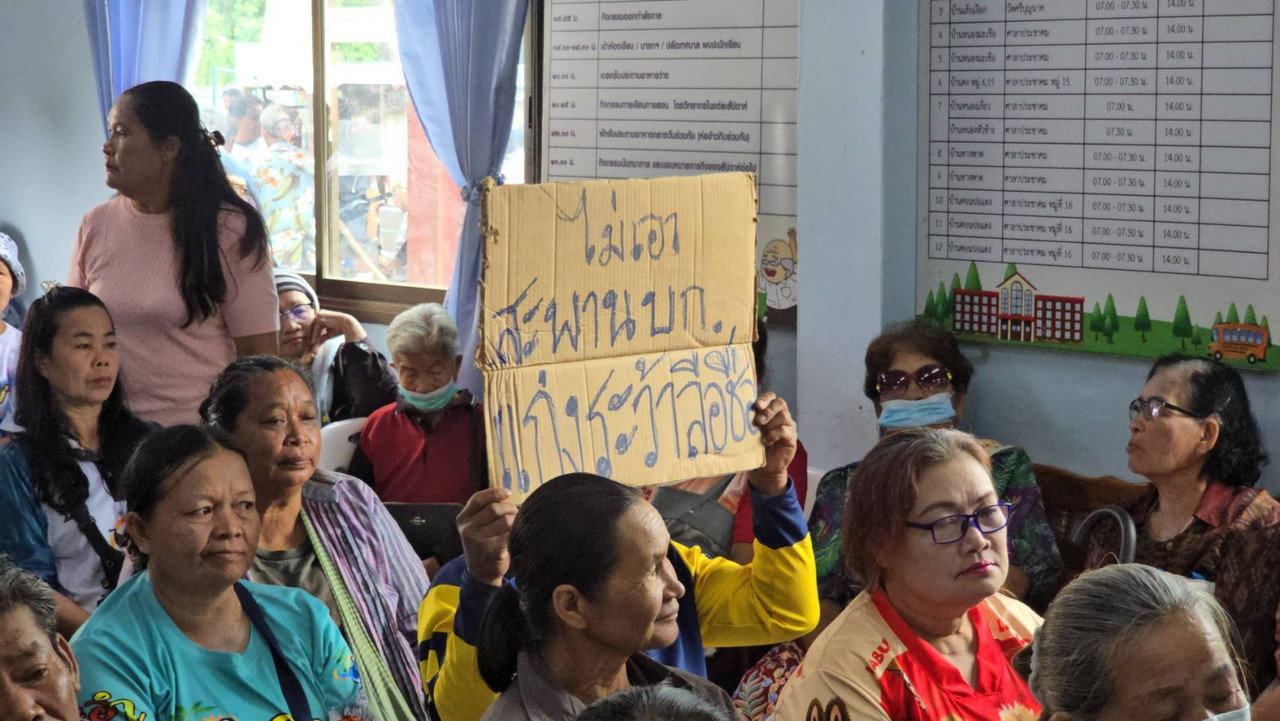 ๐๙.๔๕ น. กิจกรรมออกกำลังกาย
๑๐.๐๐ น. เบรครับประทานอาหารว่าง
๑๐.๑๕ น. กิจกรรมการเรียนการสอน โดยวิทยากรในแต่ละสัปดาห์
๑๒.๐๐ น. พักรับประทานอาหารกลางวันร่วมกัน (ห่อข้าวกินร่วมกัน)
๑๓.๐๐ น. กิจกรรมนันทนาการ และมอบหมายภารกิจของสัปดาห์ต่อไป
ไม่เอา
สะพานบก.
แก่งระว้าลือชื่อ
3 07.00 - 07.30 น. 14.00 น.
4 บ้านหนองมะเขือ ศาลาประชาคม 07.00 - 07.30 น. 14.00 น.
5 บ้านหนองมะเขือ ศาลาประชาคม 07.00 - 07.30 น. 14.00 น.
6 บ้านดง หมู่ 6,15 ศาลาประชาคม หมู่ 15 07.00 - 07.30 น. 14.00 น.
7 บ้านหนองเกี่ยว ศาลาประชาคม 07.00 น. 14.00 น.
บ้านหนองหัวช้าง ศาลาประชาคม 07.30 น. 14.00 น.
8 บ้านทางพาด ศาลาประชาคม 07.00 - 07.30 น. 14.00 น.
9 บ้านทางพาด ศาลาประชาคม 07.00 - 07.30 น. 14.00 น.
10 บ้านดอนปอแดง ศาลาประชาคม หมู่ที่ 16 07.00 - 07.30 น. 14.00 น.
11 บ้านดอนปอแดง ศาลาประชาคม หมู่ที่ 16 07.00 - 07.30 น. 14.00 น.
12 บ้านดอนปอแดง ศาลาประชาคม หมู่ที่ 16 07.00 - 07.30 น. 14.00 น.